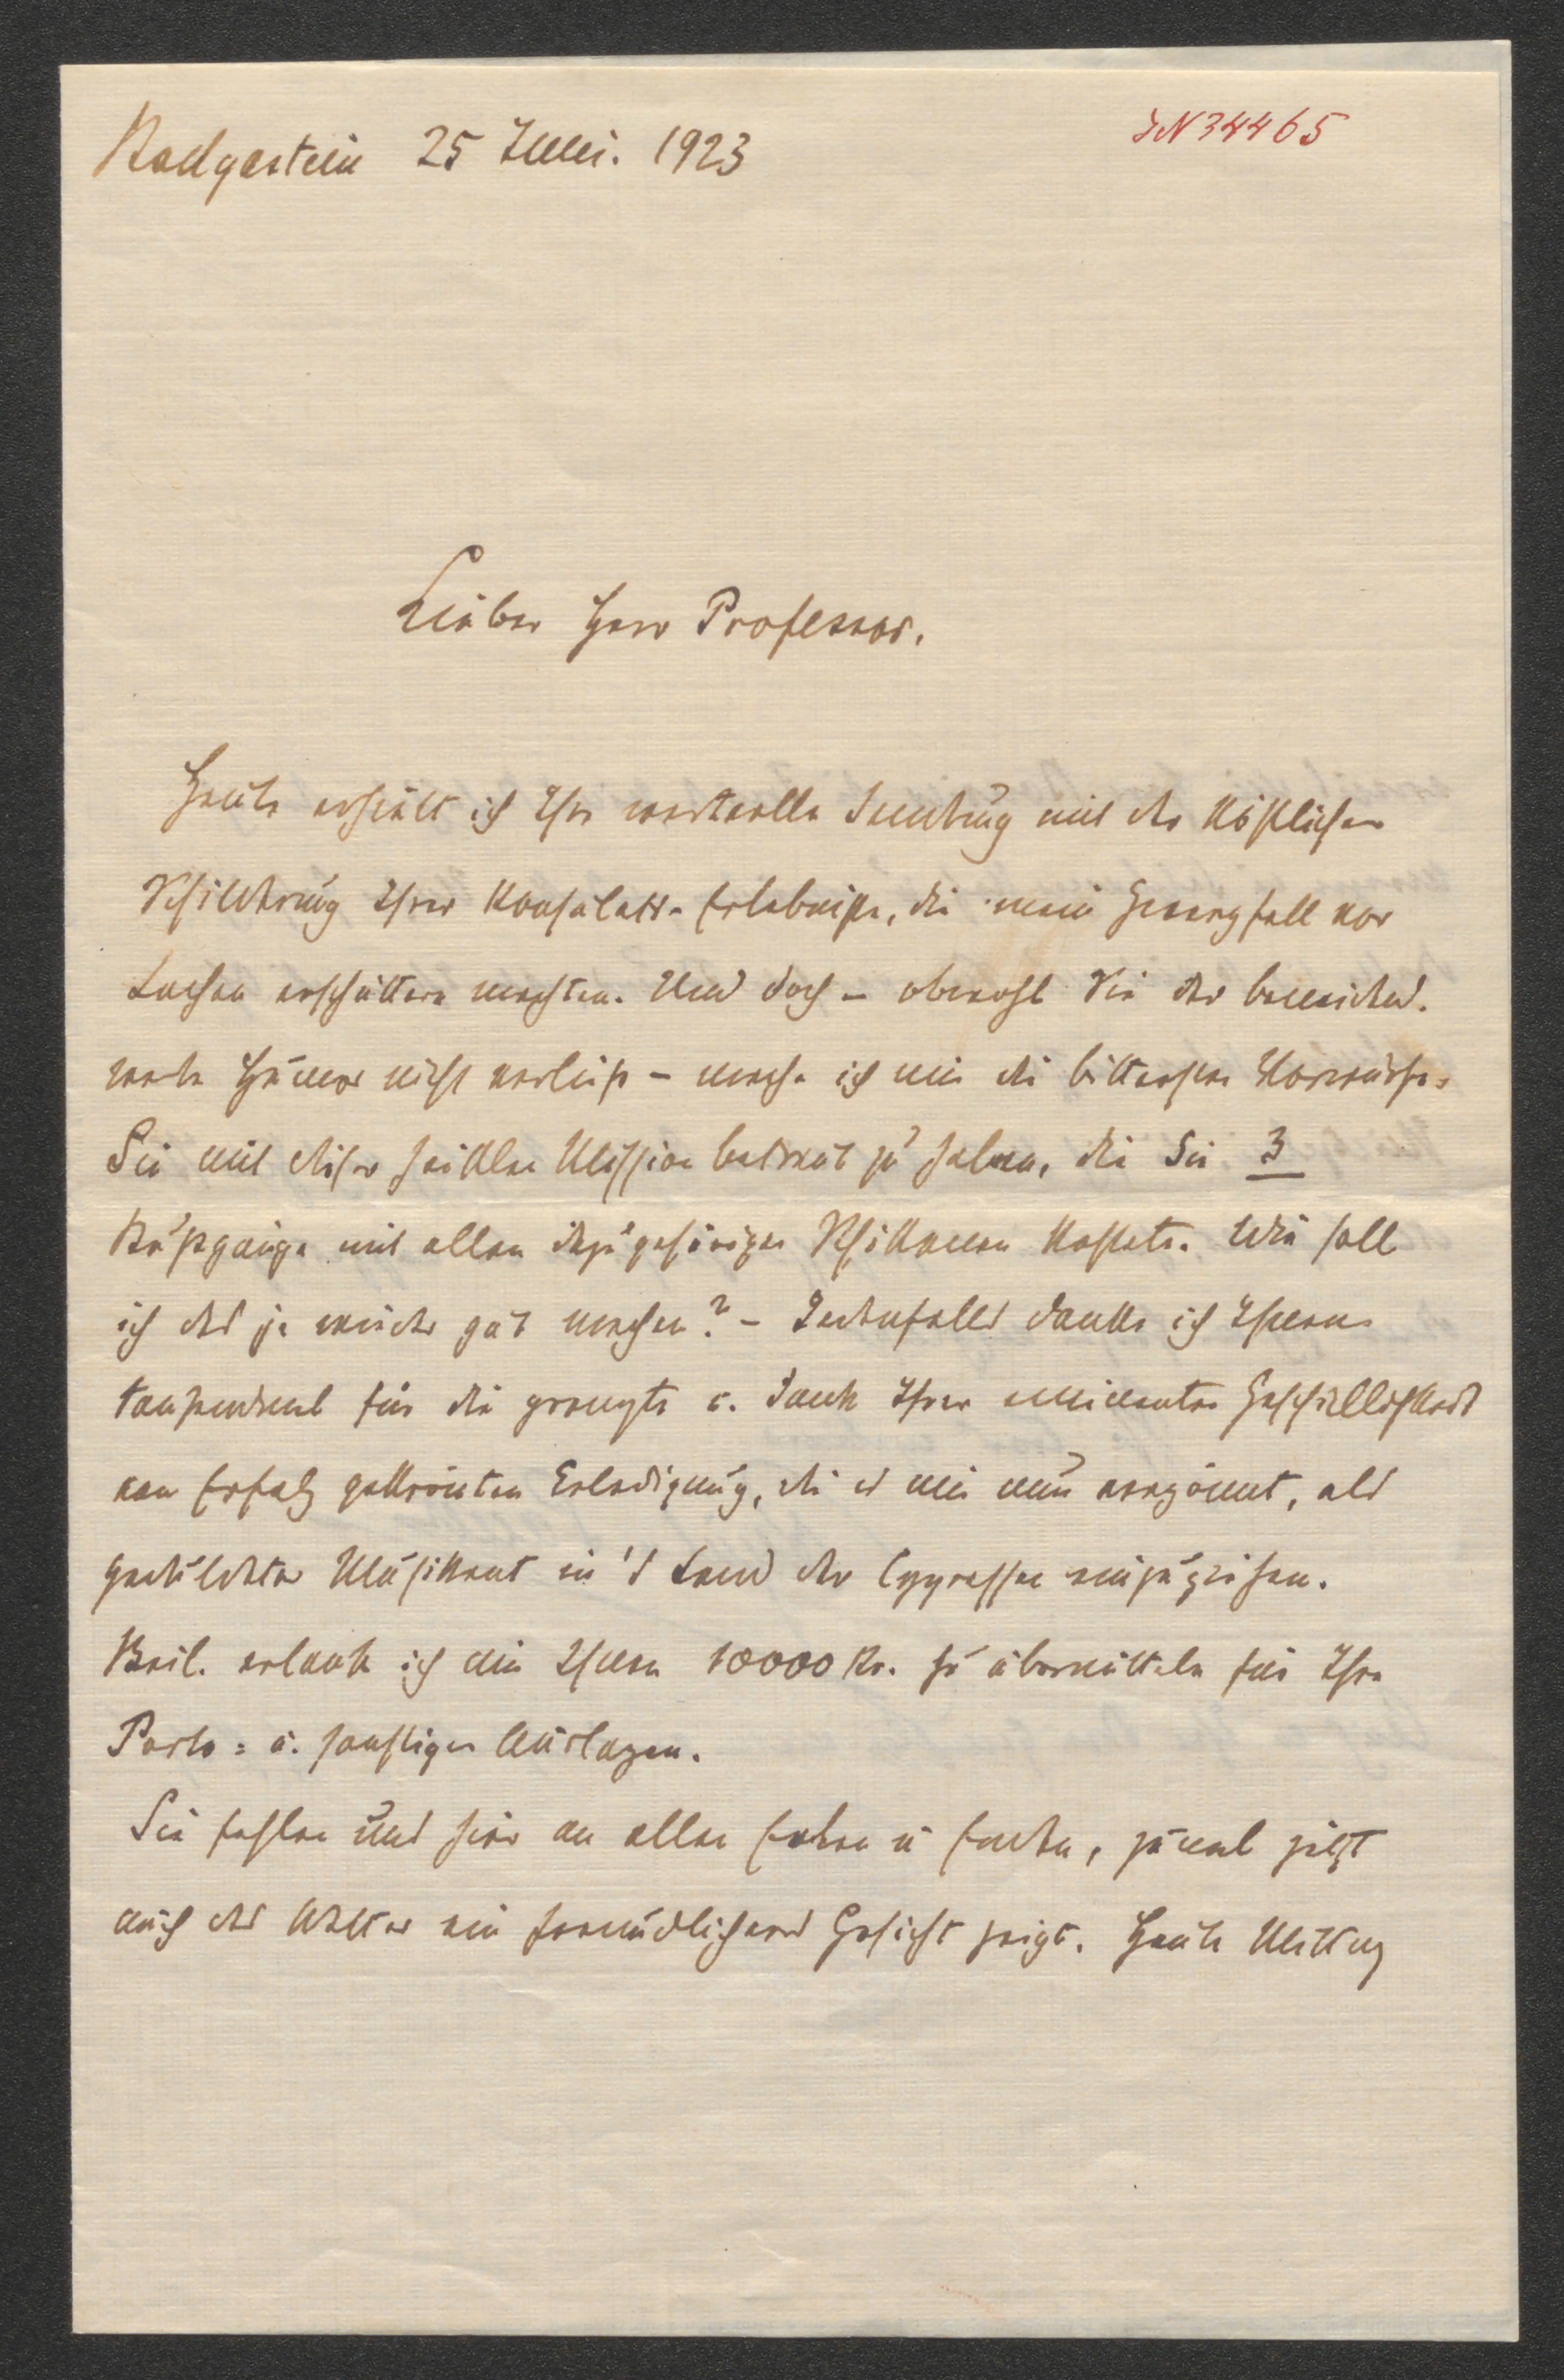 Badgastein 25 Juni. 1923
IN 34465
Lieber Herr Professor.
Heute erhielt ich Ihre wertvolle Sendung mit der köstlichen
Schilderung Ihrer Konsulats-Erlebnisse, die mein Zwerchfell vor
Lachen erschüttern machten. Und doch – obwohl Sie der beneidens-
werte Humor nicht verließ – mache ich mir die bittersten Vorwürfe,
Sie mit dieser heiklen Mission betraut zu haben, die Sie 3
Bußgänge mit allen dazugehörigen Schikanen kostete. Wie soll
ich das je wieder gut machen? – Jedenfalls danke ich Ihnen
tausendmal für die prompte u. dank Ihrer eminenten Geschicklichkeit
von Erfolg gekrönten Erledigung, die es mir nun vergönnt, als
geduldeter Musikant in's Land der Cypressen einzuziehen.
Beil. erlaube ich mir Ihnen 10000 Kr. zu übermitteln für Ihre
Porto= u. sonstigen Auslagen.
Sie fehlen uns hier an allen Ecken u Enden, zumal jetzt
auch das Wetter ein freundlicheres Gesicht zeigt. Heute Mittag